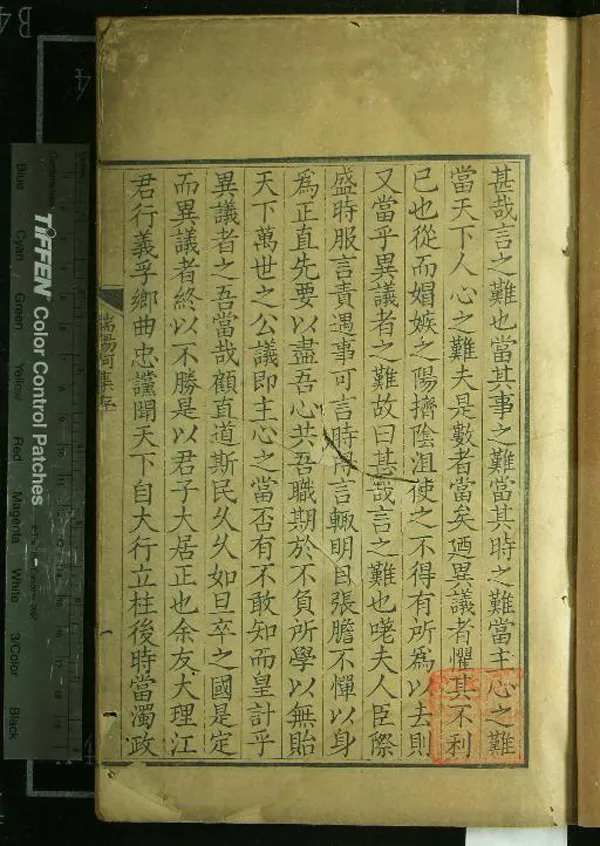 甚哉言之難也當其事之難當其時之難當主心之難
當天下人心之難夫是數者當矣廼異議者懼其不利
已也從而媢嫉之陽擠陰沮使之不得有所為以去則
又當乎異議者之難故曰甚哉言之難也嗟夫人臣際
盛時服言責遇事可言時得言輙明目張膽不憚以身
為正直先要以盡吾心共吾職期於不負所學以無貽
天下萬世之公議即主心之當否有不敢知而皇計乎
異議者之吾當哉顧直道斯民久久如旦卒之國是定
而異議者終以不勝是以君子大居正也余友大理江
君行義孚鄉曲忠讜聞天下自大行立柱後時當濁政
TIFFEN Color Control Patches
Blue
Cyan
Green
Yellow
Red
Magenta
White
3/Color
Black
B4